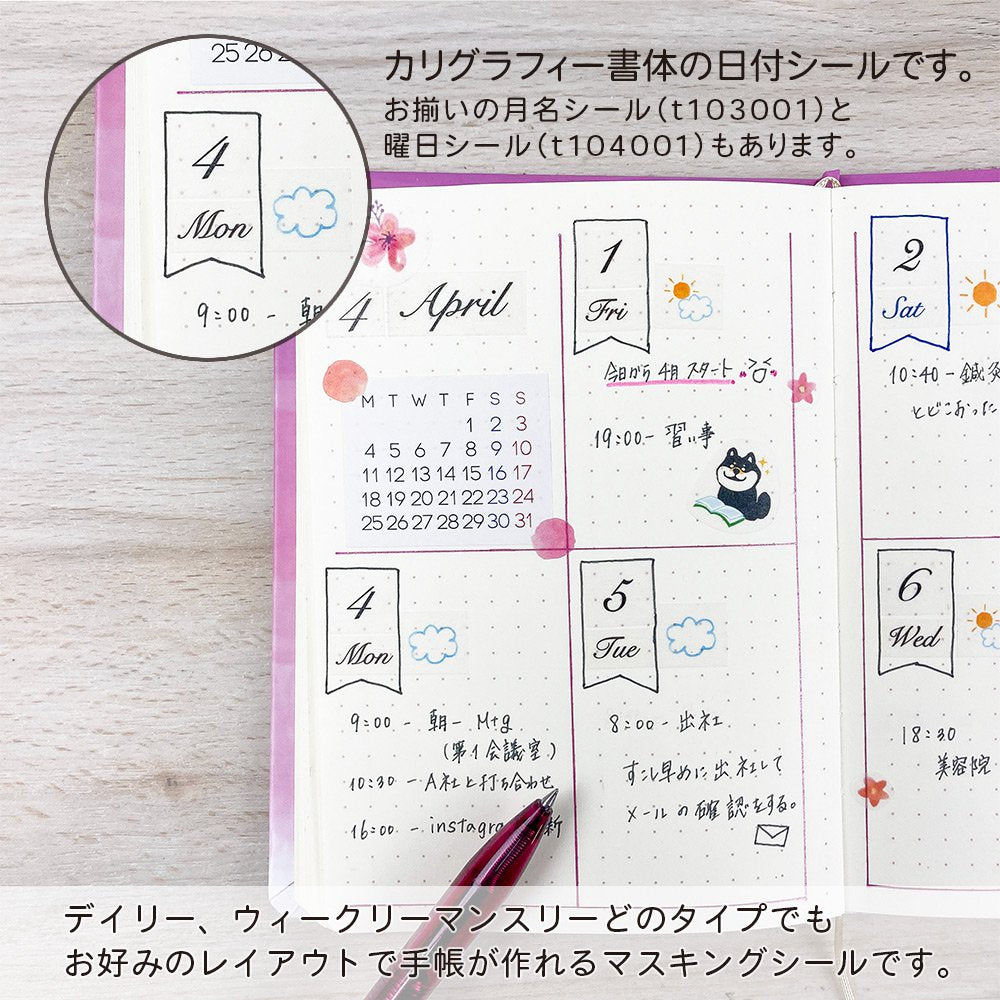 カリグラフィー書体の日付シールです。
お揃いの月名シール(t103001)と
曜日シール(t104001)もあります。
25 26
4
Mon
9:00 - 朝
4 April
M T W T F S S
1 2 3
4 5 6 7 8 9 10
11 12 13 14 15 16 17
18 19 20 21 22 23 24
25 26 27 28 29 30 31
1
Fri
今日から4月スタート
19:00- 習い事
2
Sat
10:40-鍼灸
とどこおった
4
Mon
9:00 - 朝一 Mtg
(第1会議室)
10:30 - A社と打ち合わせ
16:00 - instagra 新
5
Tue
8:00 - 出社
すこし早めに出社して
メールの確認をする。
6
Wed
18:30
美容院
デイリー、ウィークリーマンスリーどのタイプでも
お好みのレイアウトで手帳が作れるマスキングシールです。